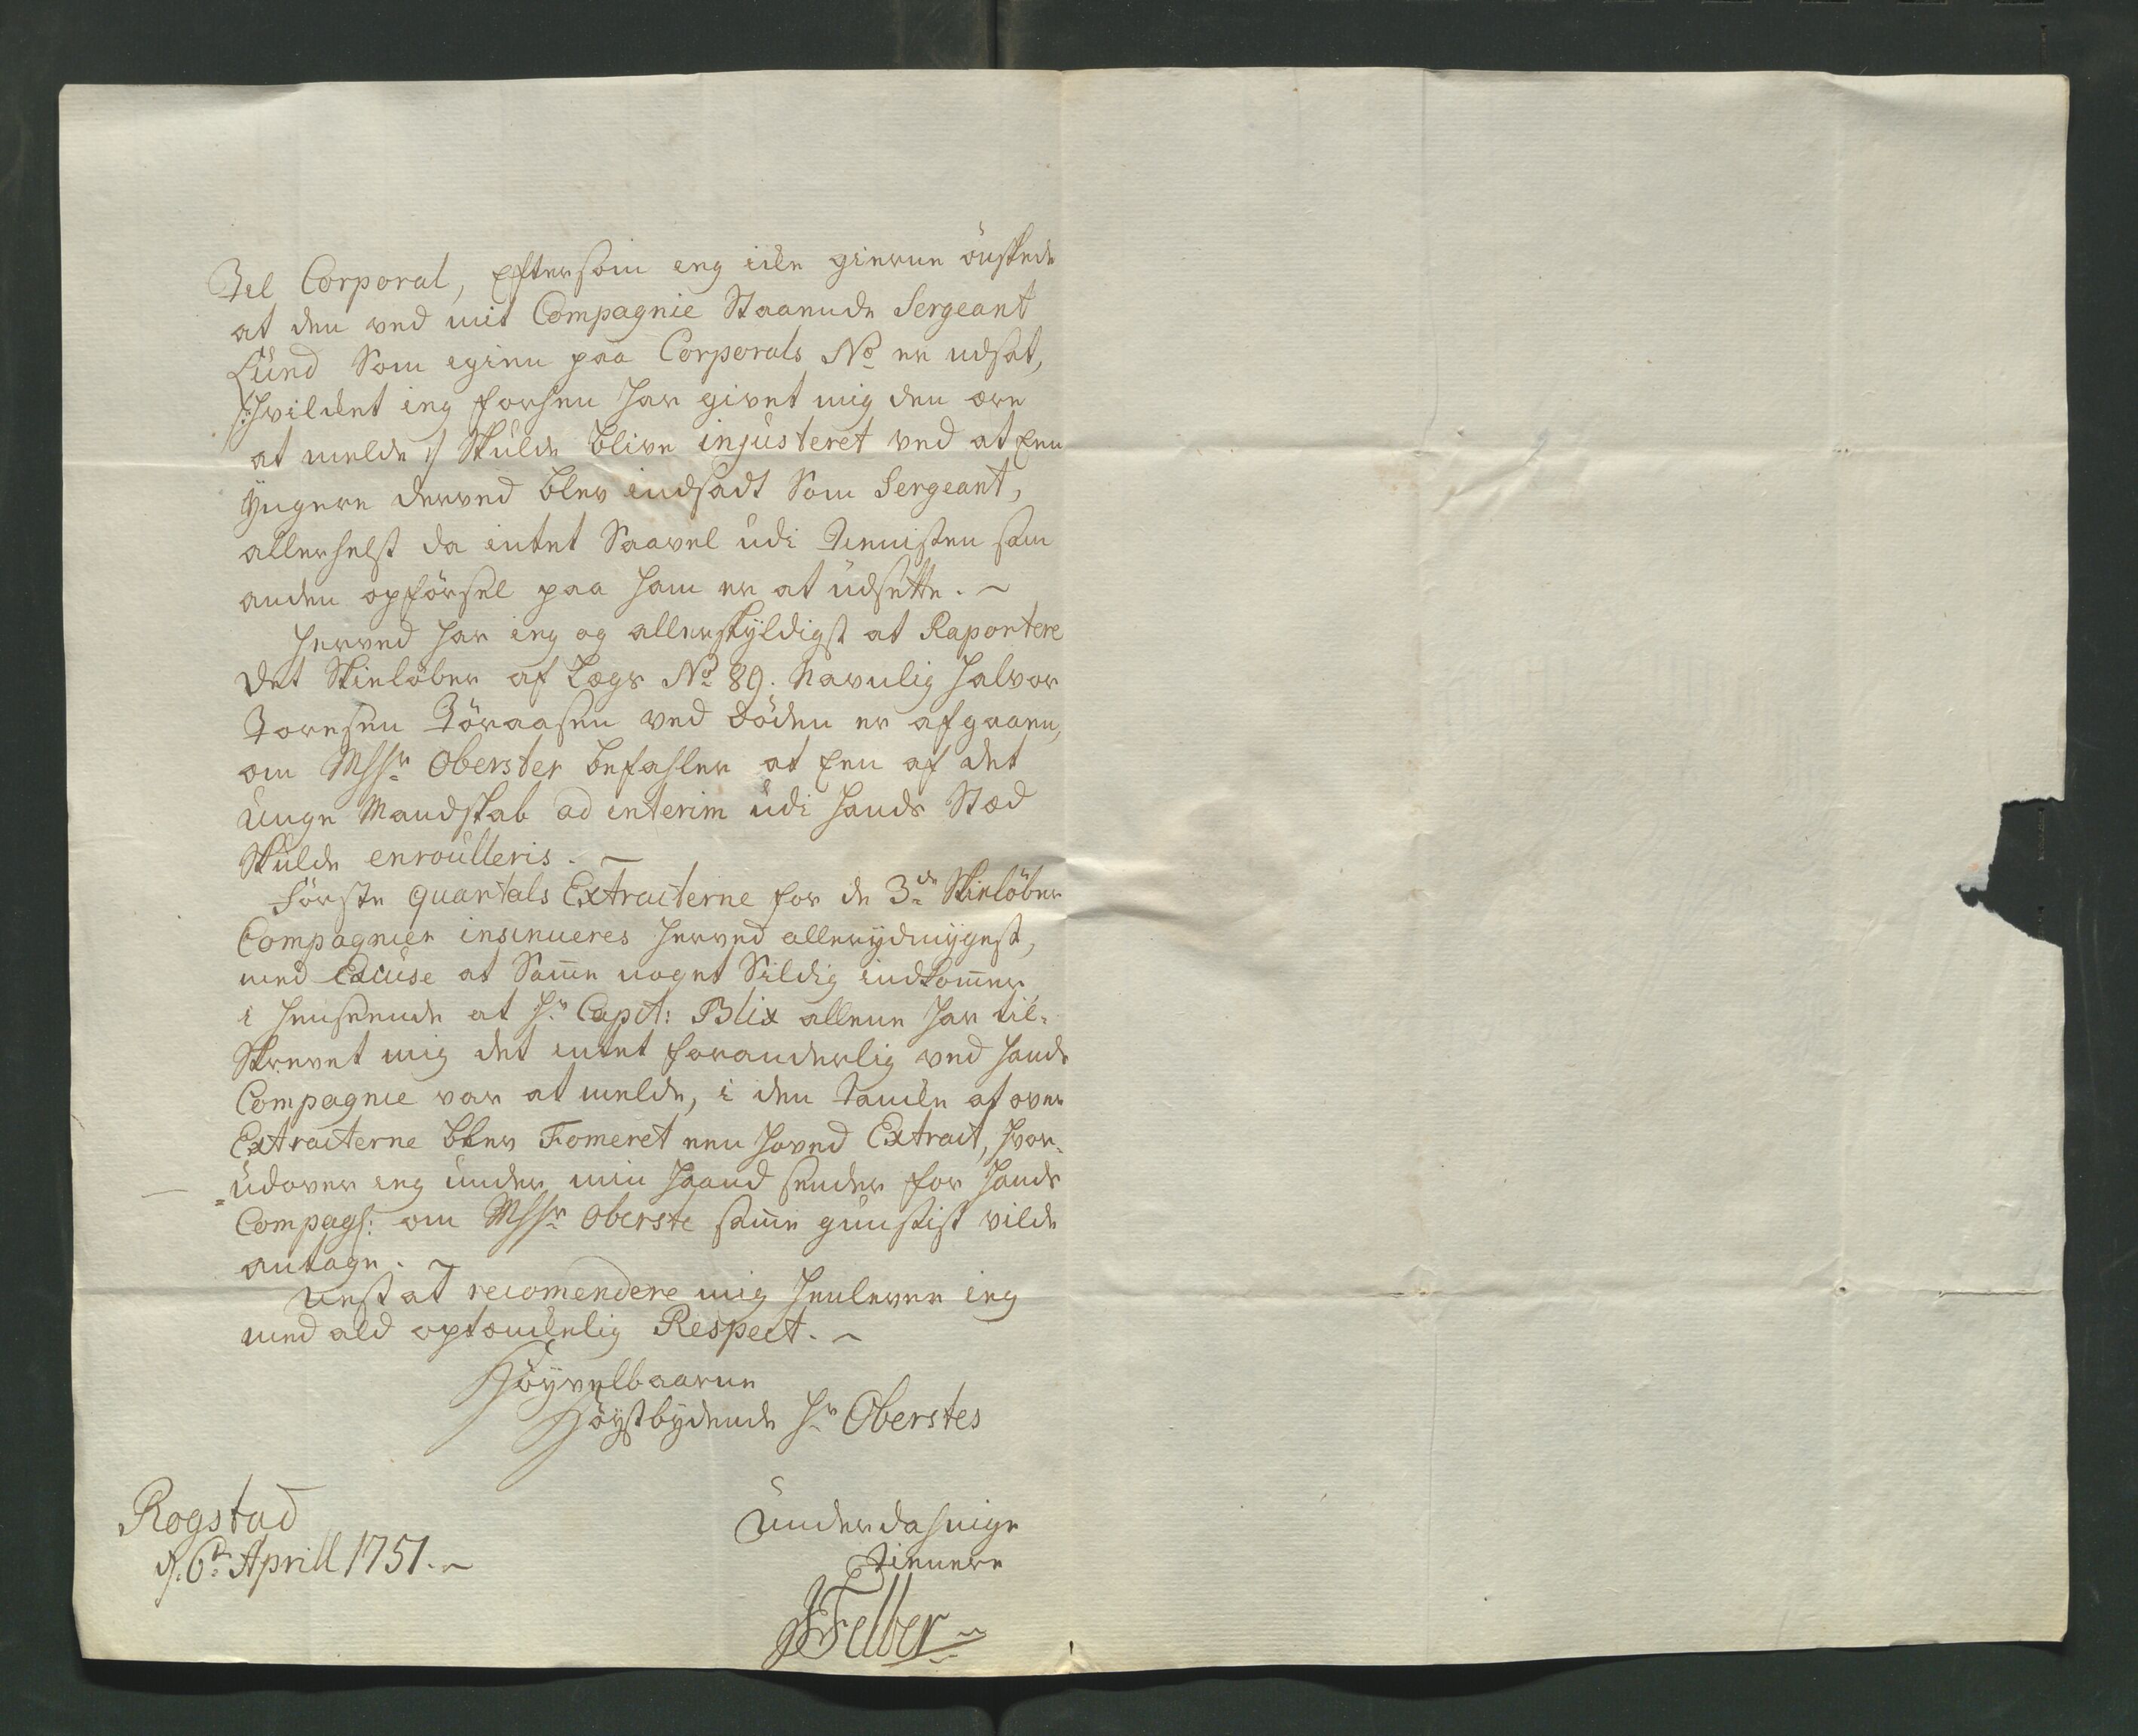 Til Corporal, Eftersom ieg icke gierne önskede
at den ved mit Compagnie Staaende Sergeant
Lünd Som igien paa Corporals No er udsat,
/: hvilcket ieg forhen har givet mig den ære
at melde :/ Skulde blive injusteret ved at Een
Yngere derved blev indsadt Som Sergeant,
allerhelst da intet Saavel udi Tienisten som
anden opförsel paa ham er at udsette. ~
Herved har ieg og allerskyldigst at Raportere
det Skielöber af Lægs No 89. Navnlig Halvor
Toresen Töraasen ved döden er afgaaen,
om Hr Oberster befahler at Een af det
Unge Mandskab ad interim udi hands Stæd
Skulde enroulleris. ~
Förste quartals Extracterne for de 3de Skielöber
Compagnier insinueres herved allerydmygest,
med Excuse at Same noget Sildig indkomer
i henseende at Hr Capit: Blix allene har til-
Skrevet mig det intet foranderlig ved hands
Compagnie var at melde, i den tancke at over
Extracterne blev Fomeret een hoved Extract, hvor-
=udover ieg under min haand sender for hands
Compags: om Hr Oberste same gunstist vilde
antage. ~
Nest at recomendere mig henlever ieg
med ald optænckelig Respect. ~
Höyvelbaarne
Höystbydende Hr Oberstes
Underdahnige
Tienere
JFelber
Rogstad
d. 6te Aprill 1751. ~